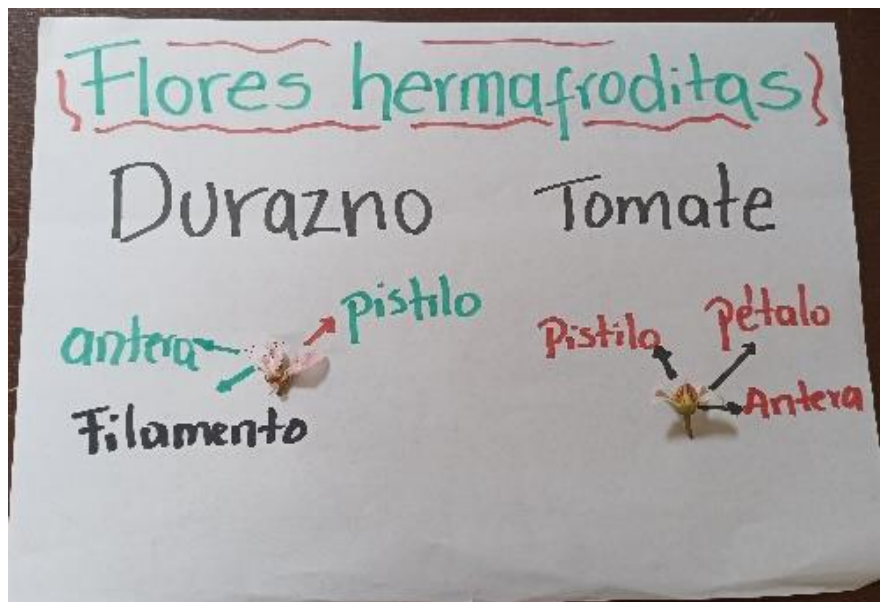 Flores hermafroditas
Durazno
Tomate
antera
pistilo
Filamento
Pistilo
pétalo
Antera